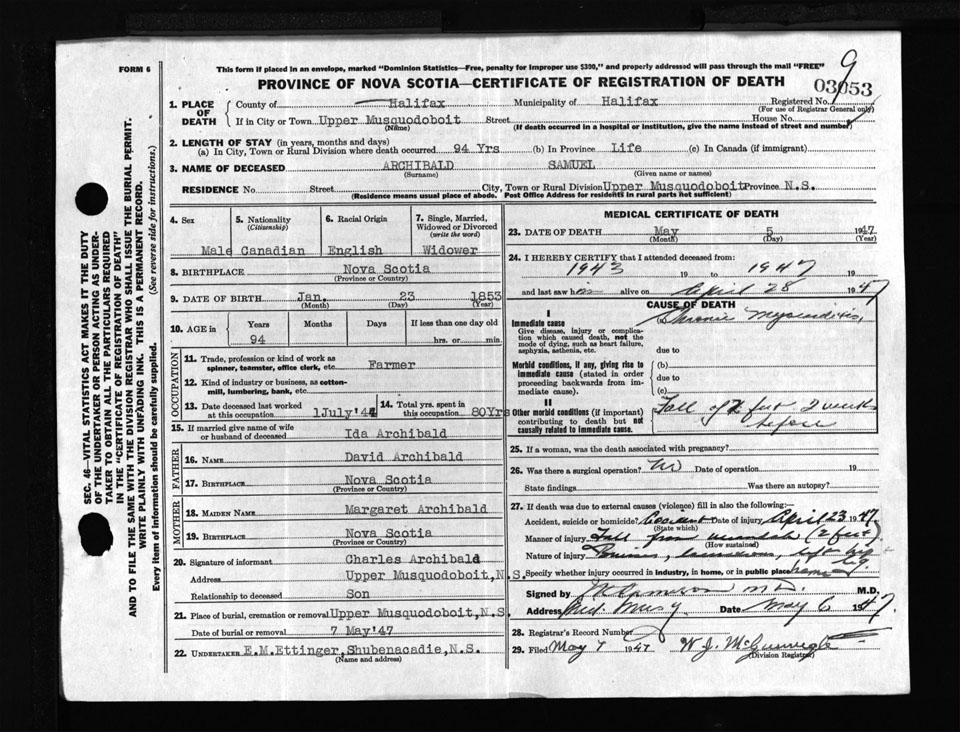 FORM 6
This form if placed in an envelope, marked "Dominion Statistics—Free, penalty for improper use $300," and properly addressed will pass through the mail "FREE"
9
PROVINCE OF NOVA SCOTIA—CERTIFICATE OF REGISTRATION OF DEATH
03053
1. PLACE OF DEATH
County of Halifax Municipality of Halifax Registered No.
(For use of Registrar General only)
If in City or Town Upper Musquodoboit Street House No.
(Name) (If death occurred in a hospital or institution, give the name instead of street and number)
2. LENGTH OF STAY (in years, months and days)
(a) In City, Town or Rural Division where death occurred 94 Yrs (b) In Province Life (c) In Canada (if immigrant)
3. NAME OF DECEASED ARCHIBALD SAMUEL
(Surname) (Given name or names)
RESIDENCE No. Street City, Town or Rural Division Upper Musquodoboit Province N.S.
(Residence means usual place of abode. Post Office Address for residents in rural parts not sufficient)
4. Sex
Male
5. Nationality
(Citizenship)
Canadian
6. Racial Origin
English
7. Single, Married, Widowed or Divorced
(write the word)
Widower
8. BIRTHPLACE Nova Scotia
(Province or Country)
9. DATE OF BIRTH Jan. 23 1853
(Month) (Day) (Year)
10. AGE in
Years Months Days If less than one day old
94 hrs. or min.
OCCUPATION
11. Trade, profession or kind of work as spinner, teamster, office clerk, etc. Farmer
12. Kind of industry or business, as cotton-mill, lumbering, bank, etc.
13. Date deceased last worked at this occupation 1 July '44
14. Total yrs. spent in this occupation 80 Yrs
15. If married give name of wife or husband of deceased Ida Archibald
FATHER
16. NAME David Archibald
17. BIRTHPLACE Nova Scotia
(Province or Country)
MOTHER
18. MAIDEN NAME Margaret Archibald
19. BIRTHPLACE Nova Scotia
(Province or Country)
20. Signature of informant Charles Archibald
Address Upper Musquodoboit, N.S.
Relationship to deceased Son
21. Place of burial, cremation or removal Upper Musquodoboit, N.S.
Date of burial or removal 7 May '47
22. UNDERTAKER E.M.Ettinger, Shubenacadie, N.S.
(Name and address)
MEDICAL CERTIFICATE OF DEATH
23. DATE OF DEATH May 5 1947
(Month) (Day) (Year)
24. I HEREBY CERTIFY that I attended deceased from:
1943 19 to 1947 19
and last saw him alive on April 28 1947
CAUSE OF DEATH
I
Immediate cause
Give disease, injury or complication which caused death, not the mode of dying, such as heart failure, asphyxia, asthenia, etc.
(a) Chronic Myocarditis,
due to
Morbid conditions, if any, giving rise to immediate cause (stated in order proceeding backwards from immediate cause).
(b)
due to
(c)
II
Other morbid conditions (if important) contributing to death but not causally related to immediate cause.
Fall of 2 feet 2 weeks
before
25. If a woman, was the death associated with pregnancy?
26. Was there a surgical operation? No Date of operation 19
State findings Was there an autopsy?
27. If death was due to external causes (violence) fill in also the following:
Accident, suicide or homicide? Accident Date of injury April 23 1947
(State which)
Manner of injury Fall from verandah (2 feet)
(How sustained)
Nature of injury Bruises, lacerations, left leg
Specify whether injury occurred in industry, in home, or in public place home
Signed by M.D.
Address Mid. Musq. Date May 6 1947
28. Registrar's Record Number
29. Filed May 7 1947 W. J.
(Division Registrar)
SEC. 46—VITAL STATISTICS ACT MAKES IT THE DUTY
OF THE UNDERTAKER OR PERSON ACTING AS UNDER-
TAKER TO OBTAIN ALL THE PARTICULARS REQUIRED
IN THE "CERTIFICATE OF REGISTRATION OF DEATH"
AND TO FILE THE SAME WITH THE DIVISION REGISTRAR WHO SHALL ISSUE THE BURIAL PERMIT.
WRITE PLAINLY WITH UNFADING INK. THIS IS A PERMANENT RECORD.
Every item of information should be carefully supplied. (See reverse side for instructions.)